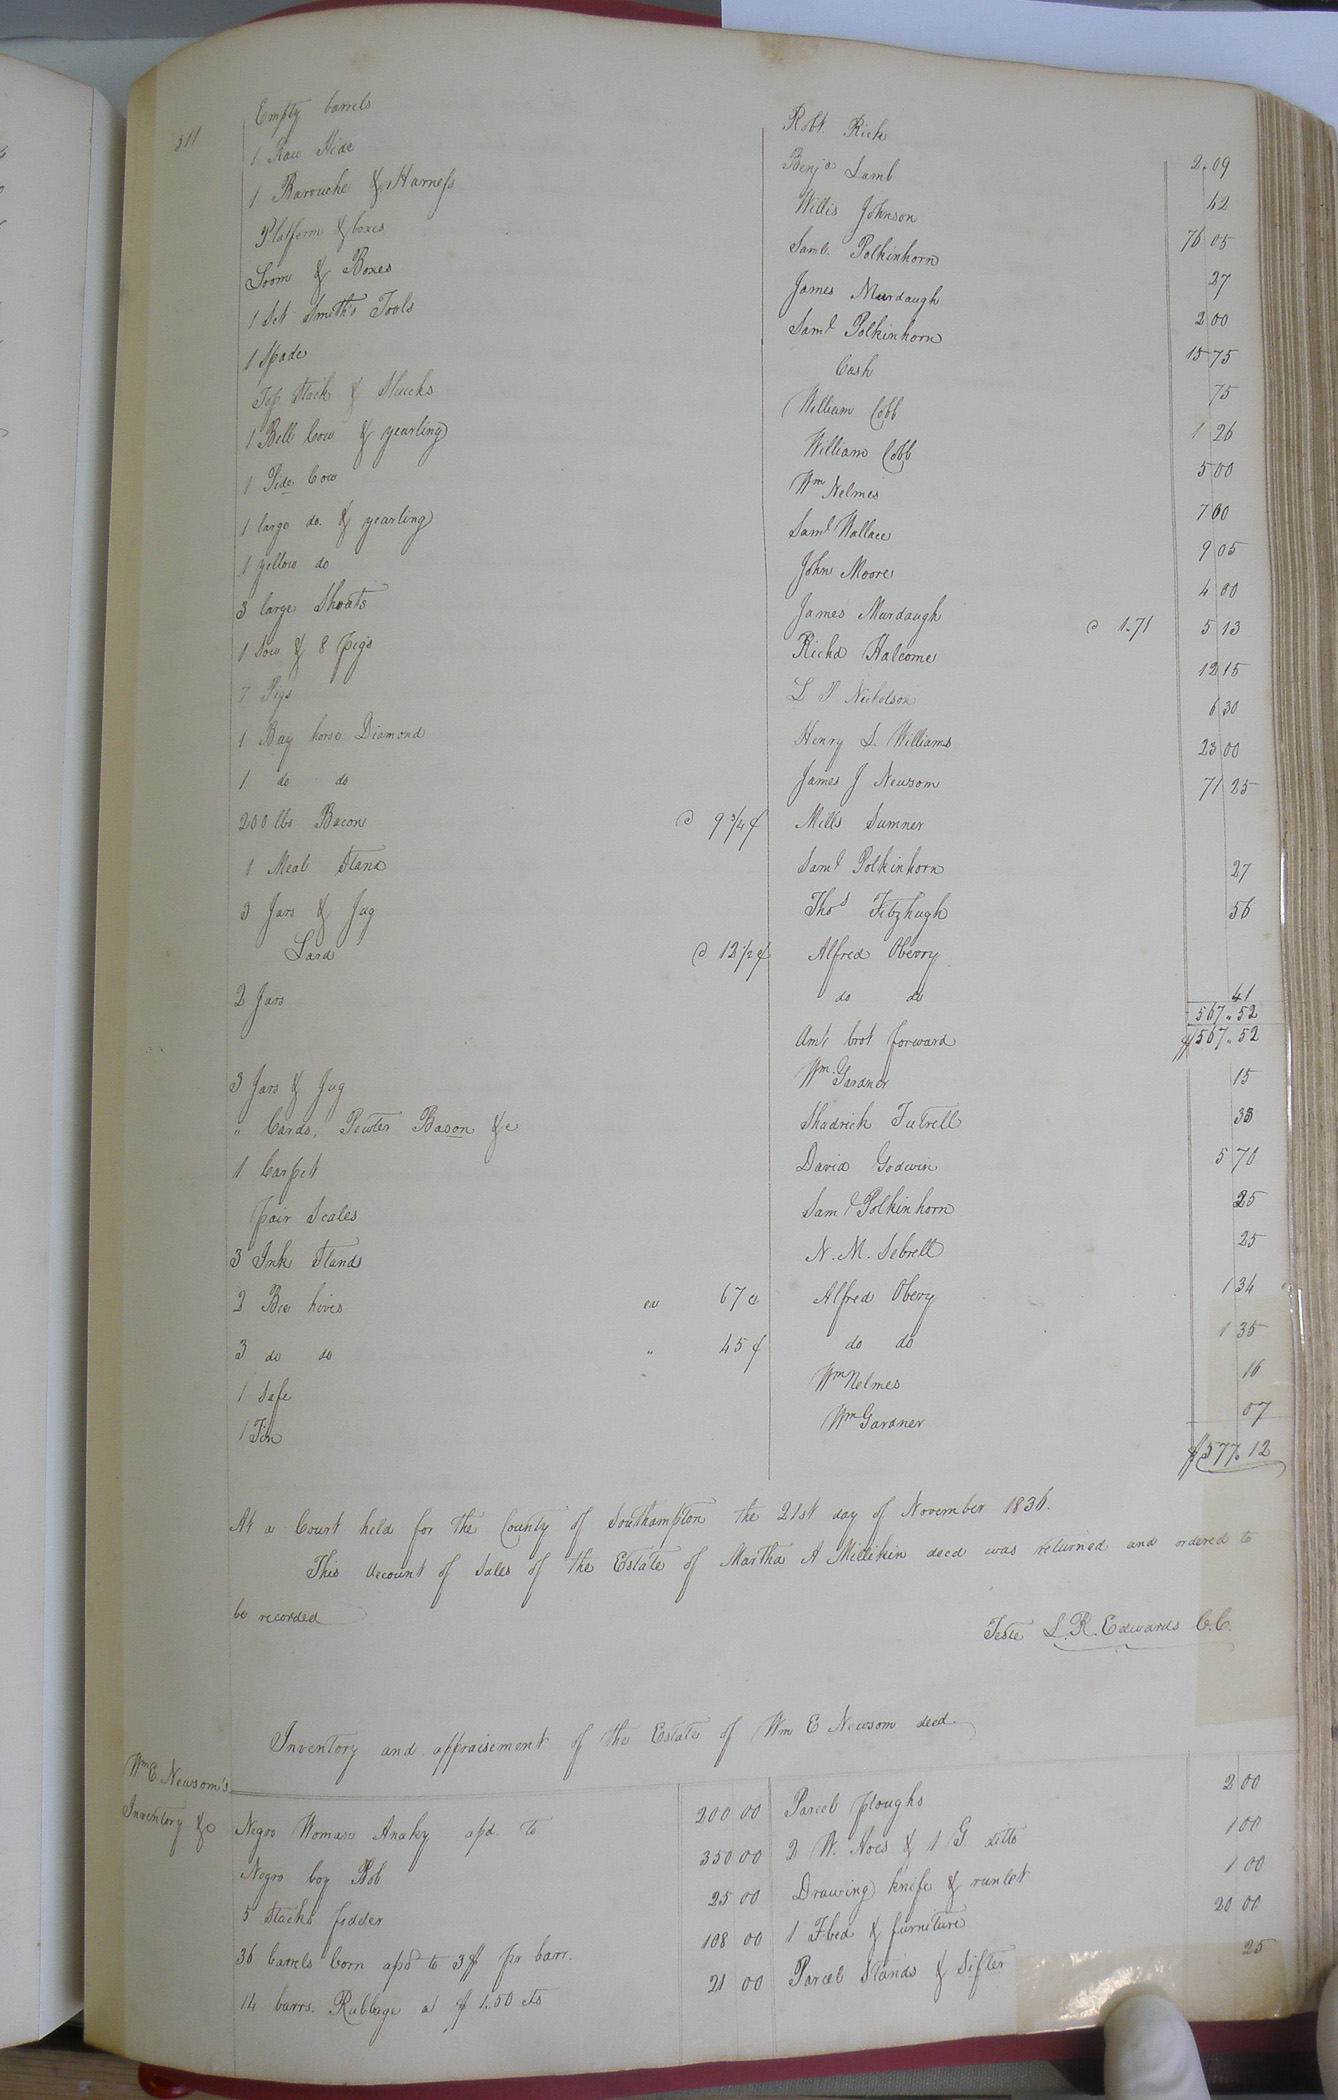 511
Empty barrels Robt. Rich 2.09
1 Raw Hide Benja Lamb 42
1 Barouche & Harness Willis Johnson 76 05
Platform & boxes Saml. Polkinhorn 27
Loom & Boxes James Murdaugh 2 00
1 Set Smith's Tools Saml Polkinhorn 15 75
1 Spade Cash 75
Top Stack & Shucks William Cobb 1 26
1 Bell Cow & yearling William Cobb 5 00
1 Pide Cow Wm Nelmes 7 00
1 large do. & yearling Saml Wallace 9 05
1 yellow do John Moore 4 00
3 large Shoats James Murdaugh @ 1.71 5 13
1 Sow & 8 pigs Richd Halcome 12 15
7 Pigs L P Nicholson 6 30
1 Bay horse Diamond Henry L. Williams 23 00
1 do do James J Newsom 71 25
200 lbs Bacon @ 9 3/4 ¢ Mills Sumner
1 Meal Stand Saml Polkinhorn 27
3 Jars & Jug Thos Fitzhugh 56
Lard @ 12 1/2 ¢ Alfred Oberry
2 Jars do do 41
567.52
Amt brot forward $567.52
3 Jars & Jug Wm. Gardner 15
" Cards, Pewter Bason &c Shadrick Futrell 35
1 Carpet David Godwin 5 70
pair Scales Saml Polkinhorn 25
3 Ink Stands N. M. Sebrell 25
2 Bee hives ea 67 c Alfred Obery 1 34
3 do do " 45 ¢ do do 1 35
1 Safe Wm Nelmes 16
1 Tin Wm Gardner 07
$577.12
At a Court held for the County of Southampton the 21st day of November 1836.
This account of Sales of the Estate of Martha A Millikin decd was returned and ordered to
be recorded
Teste L. R. Edwards C.C.
Inventory and appraisement of the Estate of Wm E Newsom decd
Wm E Newsom's
Inventory &c
Negro Woman Anaky apd. to 200 00 Parcel ploughs 2 00
Negro boy Bob 350 00 2 W. Hoes & 1 G. ditto 1 00
5 Stacks fodder 25 00 Drawing knife & runlet 1 00
36 barrels Corn apd to 3$ pr barr. 108 00 1 F bed & furniture 20 00
14 barrs. Rubbage at $1.50 cts 21 00 Parcel Stands & Sifter 25